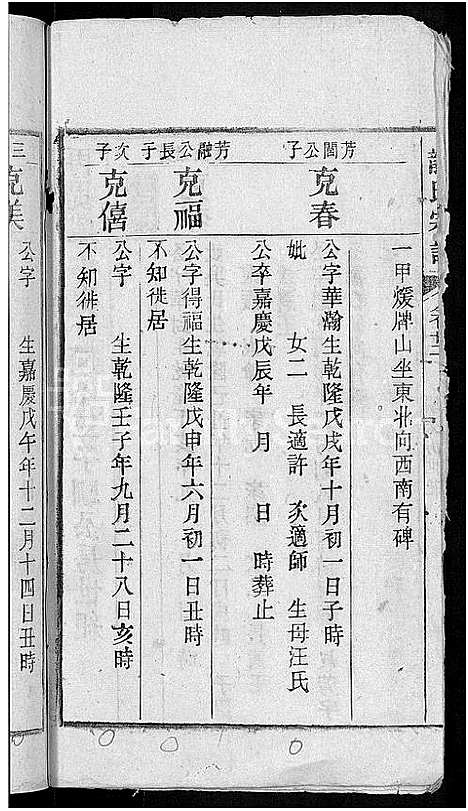 一甲煖牌山坐東北向西南有碑
芳閣公子
克春
公字華瀚生乾隆戊戌年十月初一日子時
妣 女二 長適許 次適師 生母汪氏
公卒嘉慶戊辰年 月 日 時葬止
芳融公長子
克福
公字得福生乾隆戊申年六月初一日丑時
不知徙居
次子
克僖
公字 生乾隆壬子年九月二十八日亥時
不知徙居
三
克美
公字 生嘉慶戊午年十二月十四日丑時